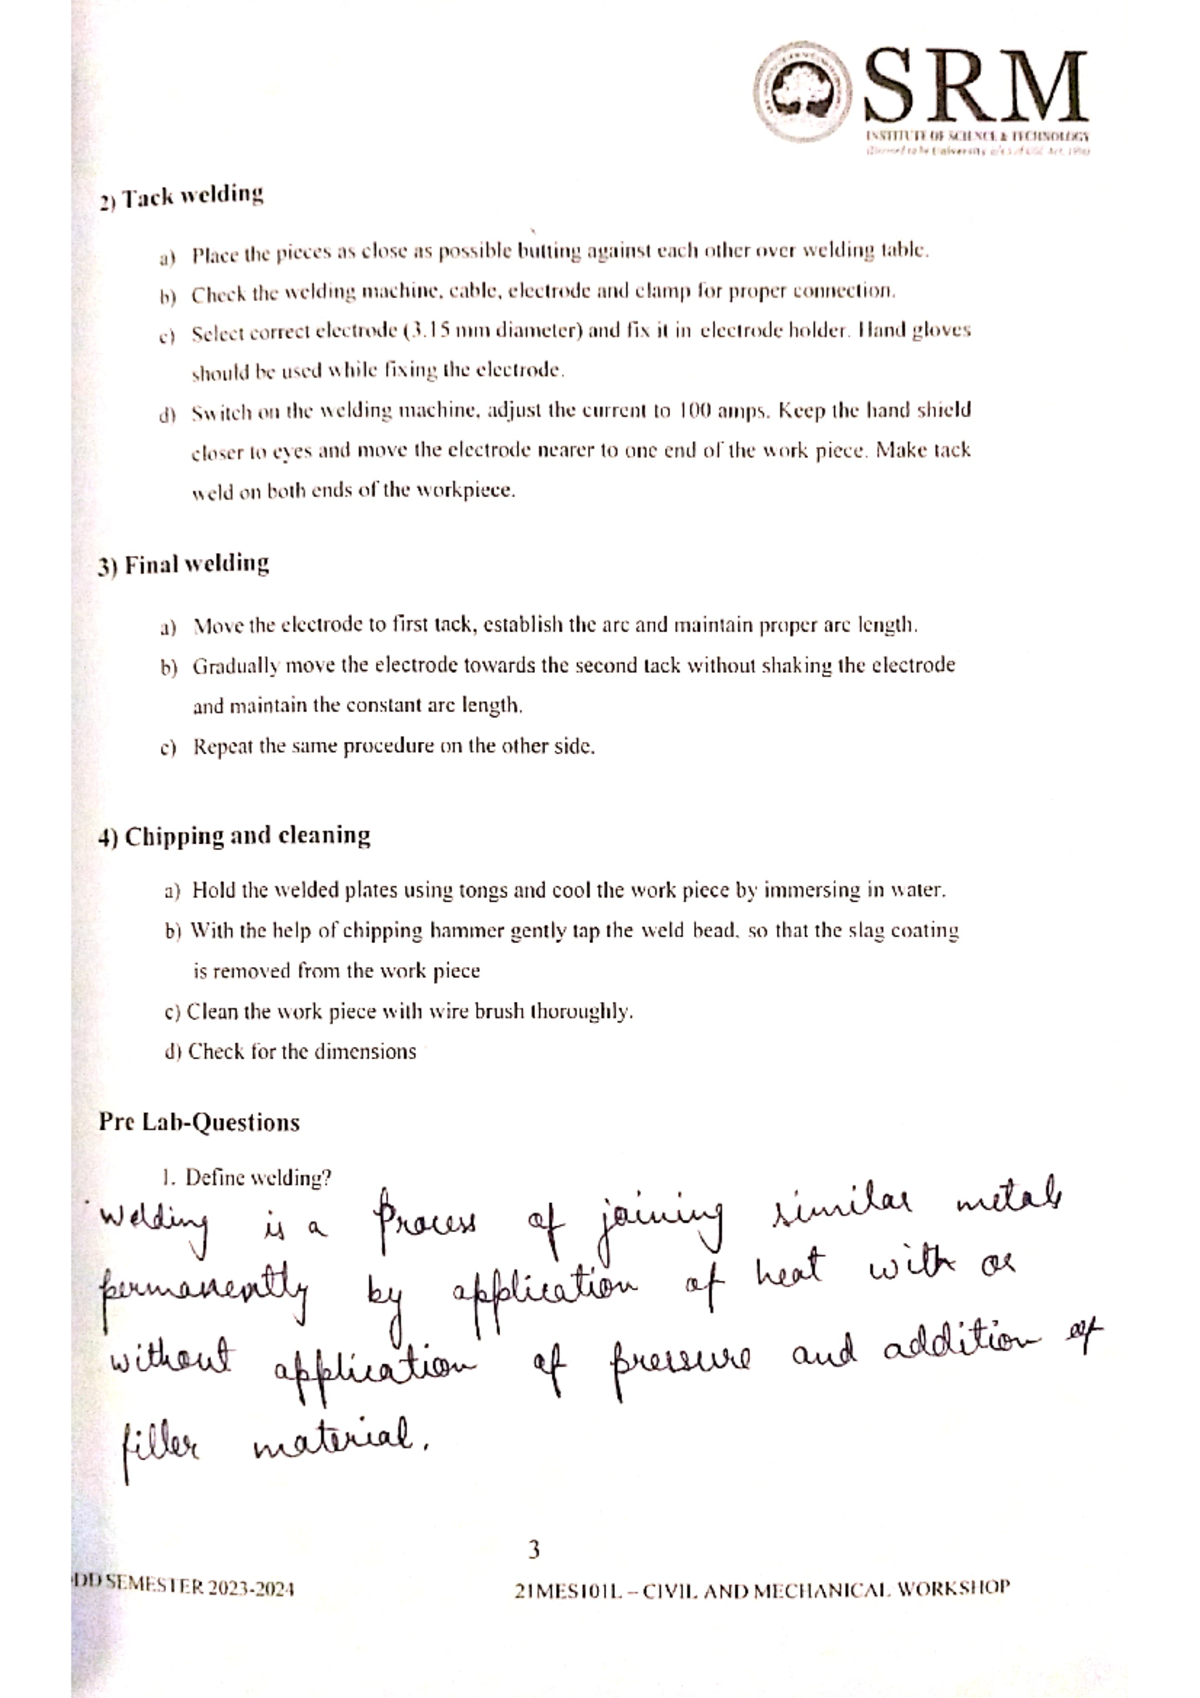 SRM
INSTITUTE OF SCIENCE & TECHNOLOGY
(Deemed to be University u/s 3 of UGC Act, 1956)
2) Tack welding
a) Place the pieces as close as possible butting against each other over welding table.
b) Check the welding machine, cable, electrode and clamp for proper connection.
c) Select correct electrode (3.15 mm diameter) and fix it in electrode holder. Hand gloves
should be used while fixing the electrode.
d) Switch on the welding machine, adjust the current to 100 amps. Keep the hand shield
closer to eyes and move the electrode nearer to one end of the work piece. Make tack
weld on both ends of the workpiece.
3) Final welding
a) Move the electrode to first tack, establish the arc and maintain proper arc length.
b) Gradually move the electrode towards the second tack without shaking the electrode
and maintain the constant arc length.
c) Repeat the same procedure on the other side.
4) Chipping and cleaning
a) Hold the welded plates using tongs and cool the work piece by immersing in water.
b) With the help of chipping hammer gently tap the weld bead, so that the slag coating
is removed from the work piece
c) Clean the work piece with wire brush thoroughly.
d) Check for the dimensions
Pre Lab-Questions
1. Define welding?
Welding is a Process of joining similar metals
permanently by application of heat with or
without application of pressure and addition of
filler material.
3
DD SEMESTER 2023-2024
21MES101L – CIVIL AND MECHANICAL WORKSHOP